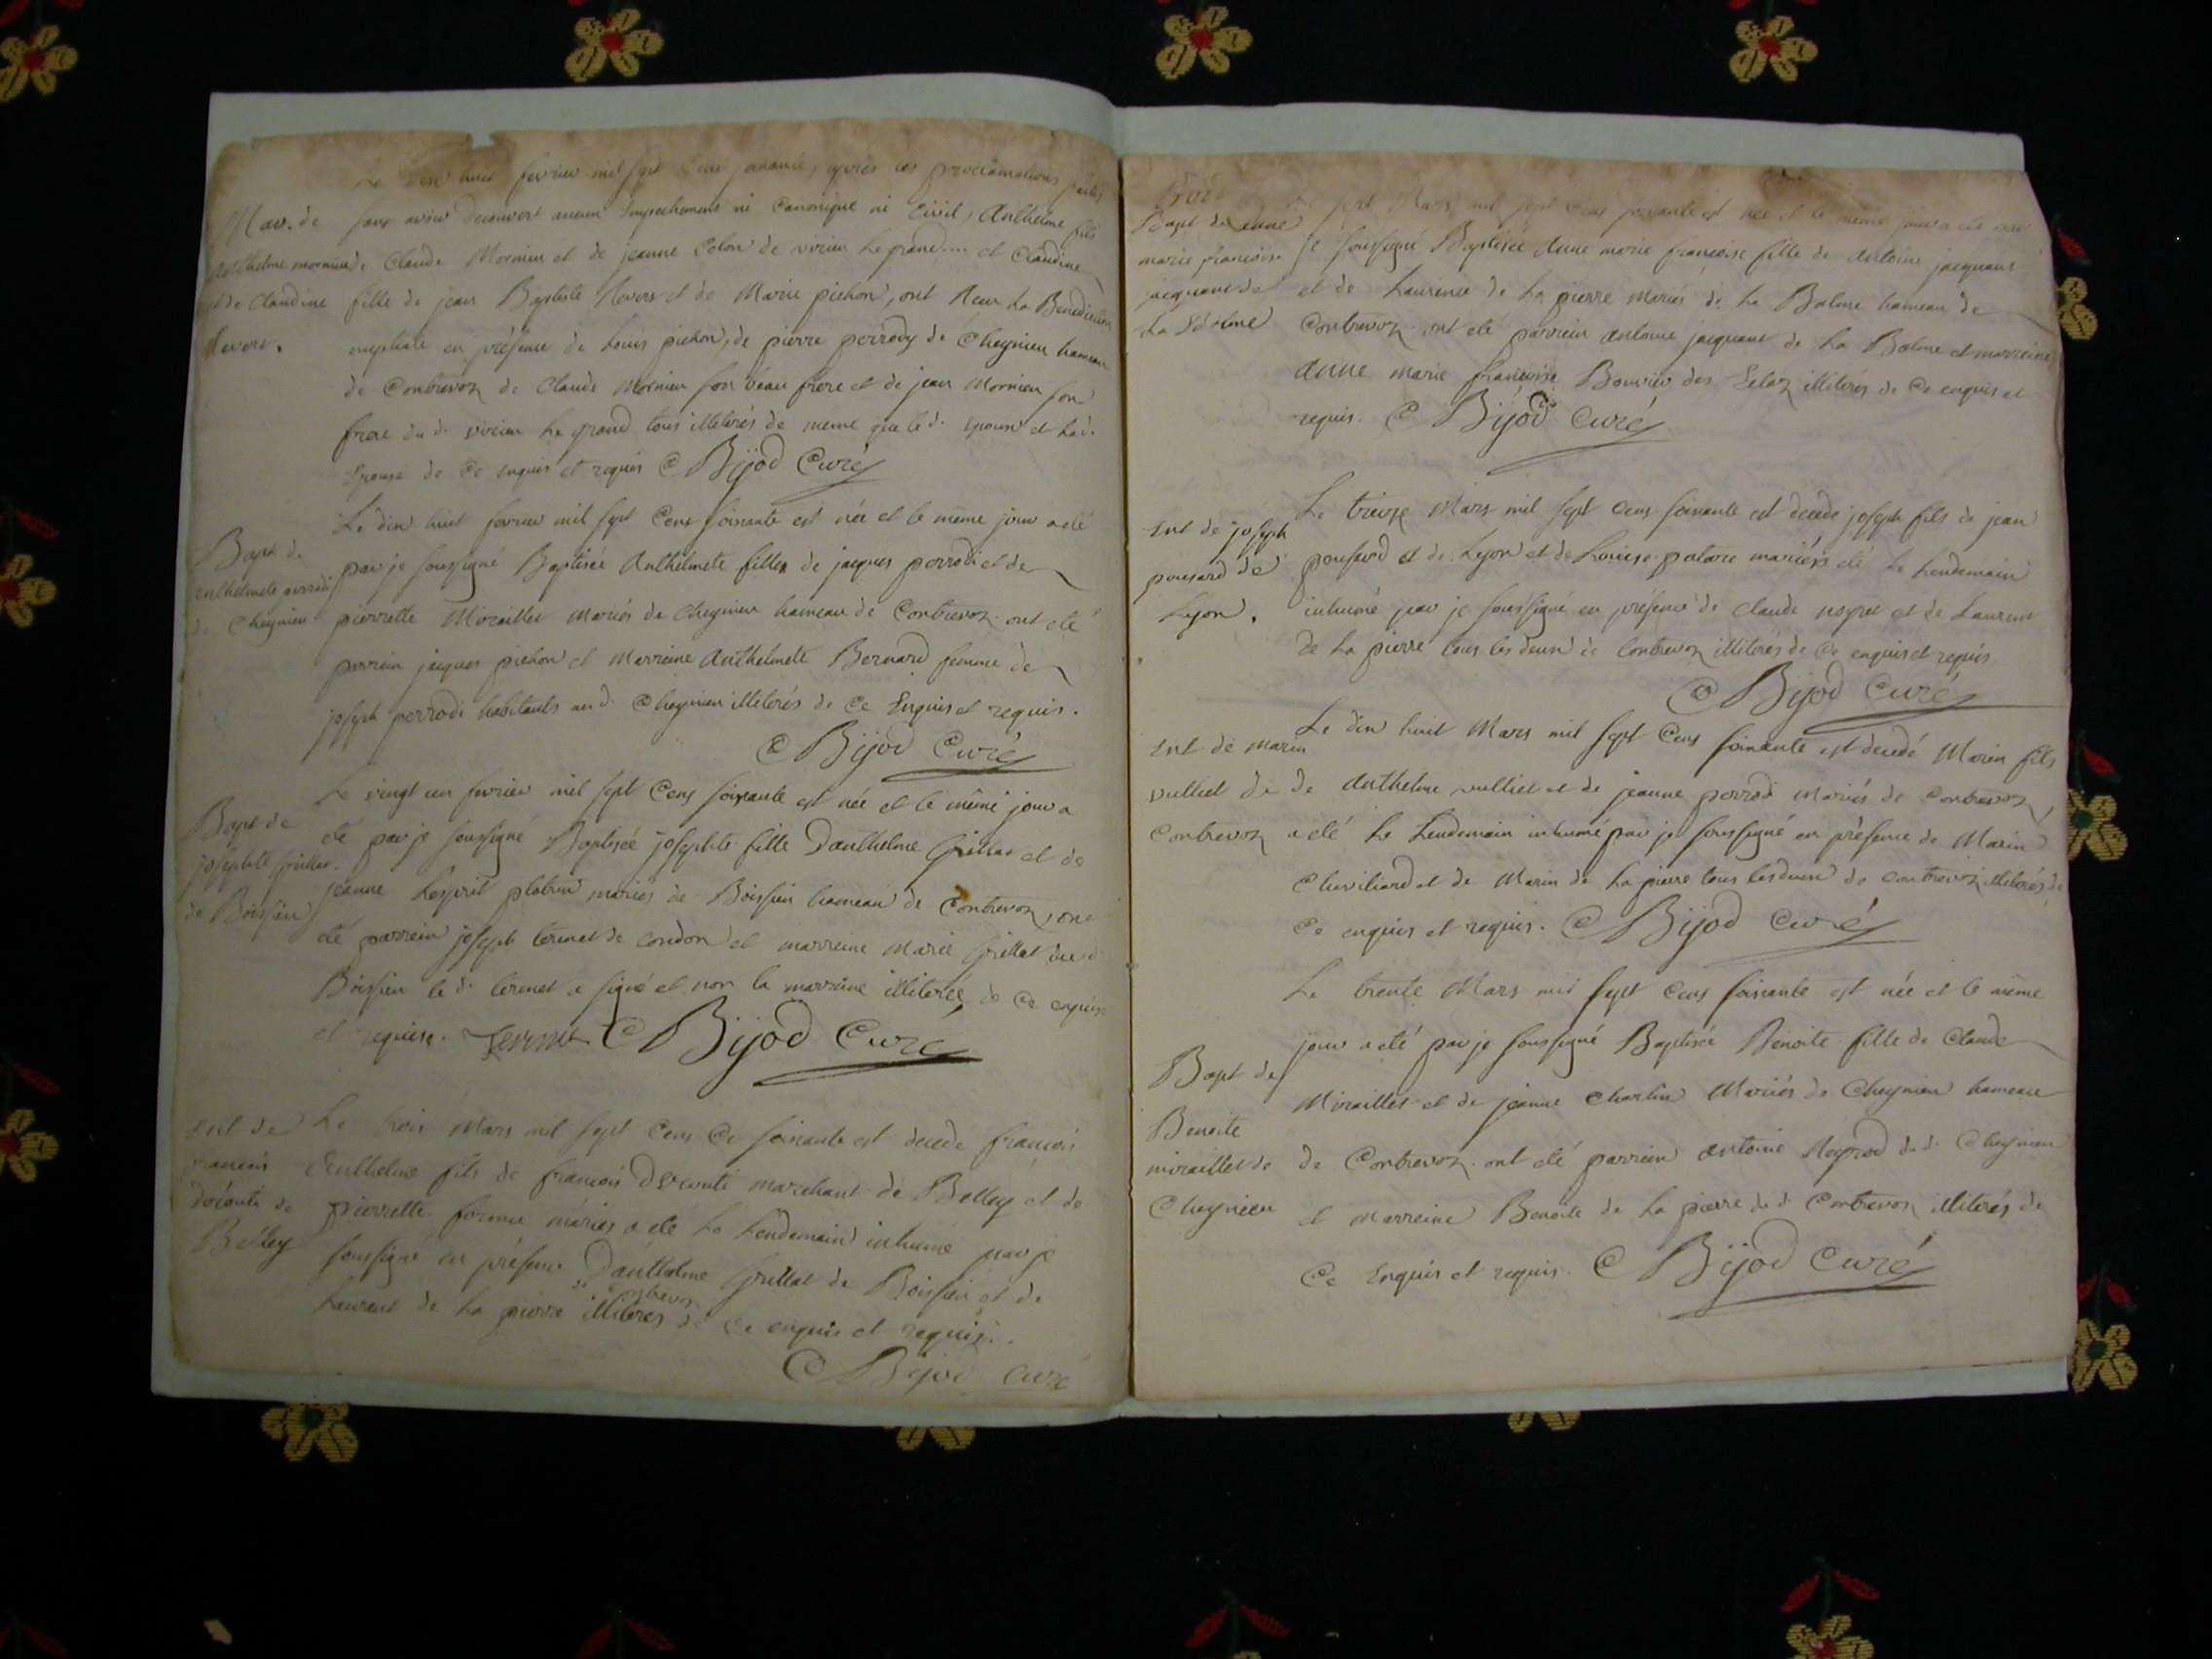 Le dix huit fevrier mil sept Cens soixante, après les proclamations faites
Mar. de
sans avoir decouvert aucun Empechement ni Canonique ni Civil, Anthelme fils
Anthelme mornieu
de Claude Mornieu et de jeanne Colon de virieu Le grand.... et Claudine
et de Claudine
fille de jean Baptiste Revers et de Marie pichon, ont Reçu La Benediction
Revers.
nuptiale en présence de Louis pichon, de pierre perrody de Cheynieu hameau
de Contrevoz de Claude Mornieu son beau frere et de jean Mornieu son
frere du d. virieu Le grand tous illiterés de meme que le d. epoux et La d.
Epouse de Ce enquis et requis C Bijod Curé
Le dix huit fevrier mil sept Cens soixante est née et le même jour a eté
Bapt. de
par je soussigné Baptisée Anthelmete fille de jacques perrodi et de
anthelmete perrodi
de Cheynieu
pierrette Miraillet Mariés de Cheynieu hameau de Contrevoz. ont eté
parrein jacques pichon et Marreine Anthelmete Bernard femme de
joseph perrodi habitants au d. Cheynieu illiterés de Ce Enquis et requis.
C Bijod Curé
Le vingt un fevrier mil sept Cens soixante est née et le même jour a
Bapt de
eté par je soussigné Baptisée josephte fille D'anthelme Grillat et de
josephte grillat.
jeanne Lesprit platrier mariés de Boissieu hameau de Contrevoz, ont
de Boissieu
eté parrein joseph ternet de Condon et marreine Marie Grillat du d.
Boissieu le d. ternet a signé et non la marreine illiterée de Ce enquise
et requise. Ternet C Bijod Curé
Ent de
Le trois Mars mil sept Cens Ce soixante est decede françois
françois
Anthelme fils de françois Deconte marchant de Belley et de
Deconte de
pierrette mariés a eté Le Lendemain inhumé par je
Belley
soussigné en présence D'anthelme Grillat de Boissieu et de
de Contrevoz
Laurent de La pierre illiterés de Ce enquis et requis.
C Bijod Curé
sept Mars mil sept Cens soixante est née et le même jour a eté par
Bapt de Anne
je soussigné Baptisée Anne marie françoise fille de Antoine jacquant
marie françoise
et de Laurence de La pierre Mariés de La Balme hameau de
jacquant de
La Balme
Contrevoz. ont eté parrein Antoine jacquant de La Balme et marreine
Anne marie françoise Bouvier des illiterés de Ce enquis et
requis. C Bijod Curé
Le treize Mars mil sept Cens soixante est decede joseph fils de jean
Ent de joseph
ponsard de
ponsard et de Lyon et de Louise mariés a eté Le Lendemain
Lyon.
inhumé par je soussigné en présence de Claude noyret et de Laurent
de La pierre tous les deux de Contrevoz illiterés de Ce enquis et requis
C Bijod Curé
Le dix huit Mars mil sept Cens soixante est decedé Marin fils
Ent de marin
vulliet de
de Anthelme vulliet et de jeanne perrodi Mariés de Contrevoz,
Contrevoz
a eté Le Lendemain inhumé par je soussigné en présence de Marin
Cluviliard et de Marin de La pierre tous les deux de Contrevoz illiterés de
Ce enquis et requis. C Bijod Curé
Le trente Mars mil sept Cens soixante est née et le même
jour a eté par je soussigné Baptisée Benoite fille de Claude
Bapt de
Miraillet et de jeanne Charlin Mariés de Cheynieu hameau
Benoite
miraillet de
de Contrevoz. ont eté parrein Antoine Reyrod du d. Cheynieu
Cheynieu
et Marreine Benoite de La pierre du d. Contrevoz illiterés de
Ce Enquis et requis. C Bijod Curé